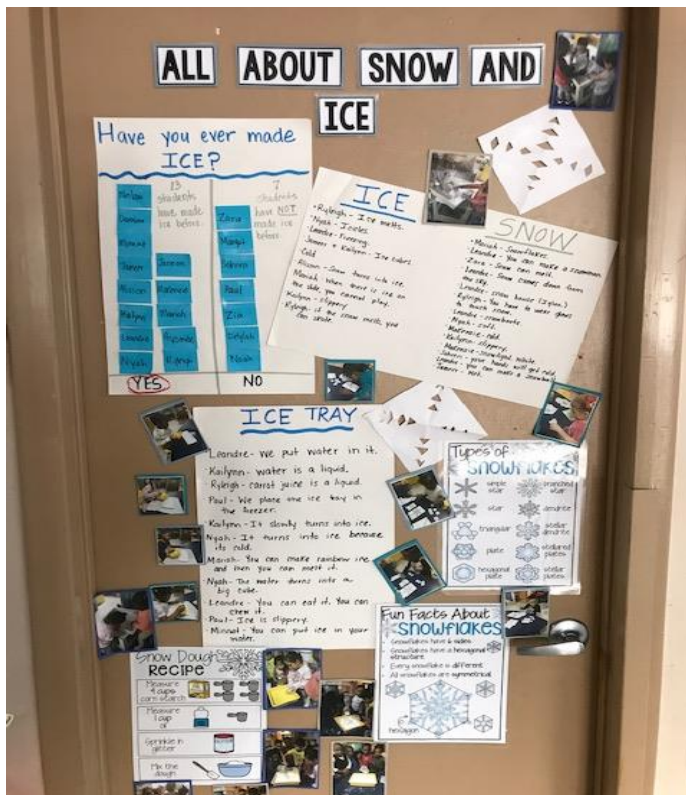 ALL ABOUT SNOW AND
ICE
Have you ever made
ICE?
13
students
have made
ice before.
7
students
have NOT
made ice
before.
Janen
Alison
Kailynn
Leandre
Nyah
Mariah
Zara
Paul
Zia
Noah
YES
NO
ICE
Ryleigh - Ice melts.
Nyah - Icicles.
Leandre - Running.
Kailynn - Ice cubes.
Cold
Alison - Snow turns into ice.
Mariah - When there is ice on
the slide, you cannot play.
Kailynn - slippery
Ryleigh - if the snow melts, you
can skate.
SNOW
Mariah - Snowflakes.
Leandre - You can make a snowman
Zara - Snow can melt.
Leandre - Snow comes down from
the sky.
Leandre - snow house (Igloo)
Ryleigh - You have to wear gloves
to touch snow.
Leandre - snowboots.
Nyah - soft.
Mackenzie - cold.
Kailynn - slippery.
your hands will get cold.
Leandre - you can make a snowball
ICE TRAY
Leandre - We put water in it.
Kailynn - water is a liquid.
Ryleigh - carrot juice is a liquid.
Paul - We place the ice tray in
the freezer.
Kailynn - It slowly turns into ice.
Nyah - It turns into ice because
its cold.
Mariah - You can make rainbow ice
and then you can melt it.
Nyah - The water turns into a
big cube.
Leandre - You can eat it. You can
chew it.
Paul - Ice is slippery.
You can put ice in your
water.
Types of
SNOWFLAKES
simple
star
branched
star
star
dendrite
triangular
stellar
dendrite
plate
stellared
plates
hexagonal
plate
stellar
plates
Fun Facts About
SNOWFLAKES
Snowflakes have 6 sides
Snowflakes have a hexagonal
structure
Every snowflake is different
All snowflakes are symmetrical
hexagon
Snow Dough
RECIPE
Measure
4 cups
corn starch
Measure
1 cup
oil
Sprinkle in
glitter
Mix the
dough